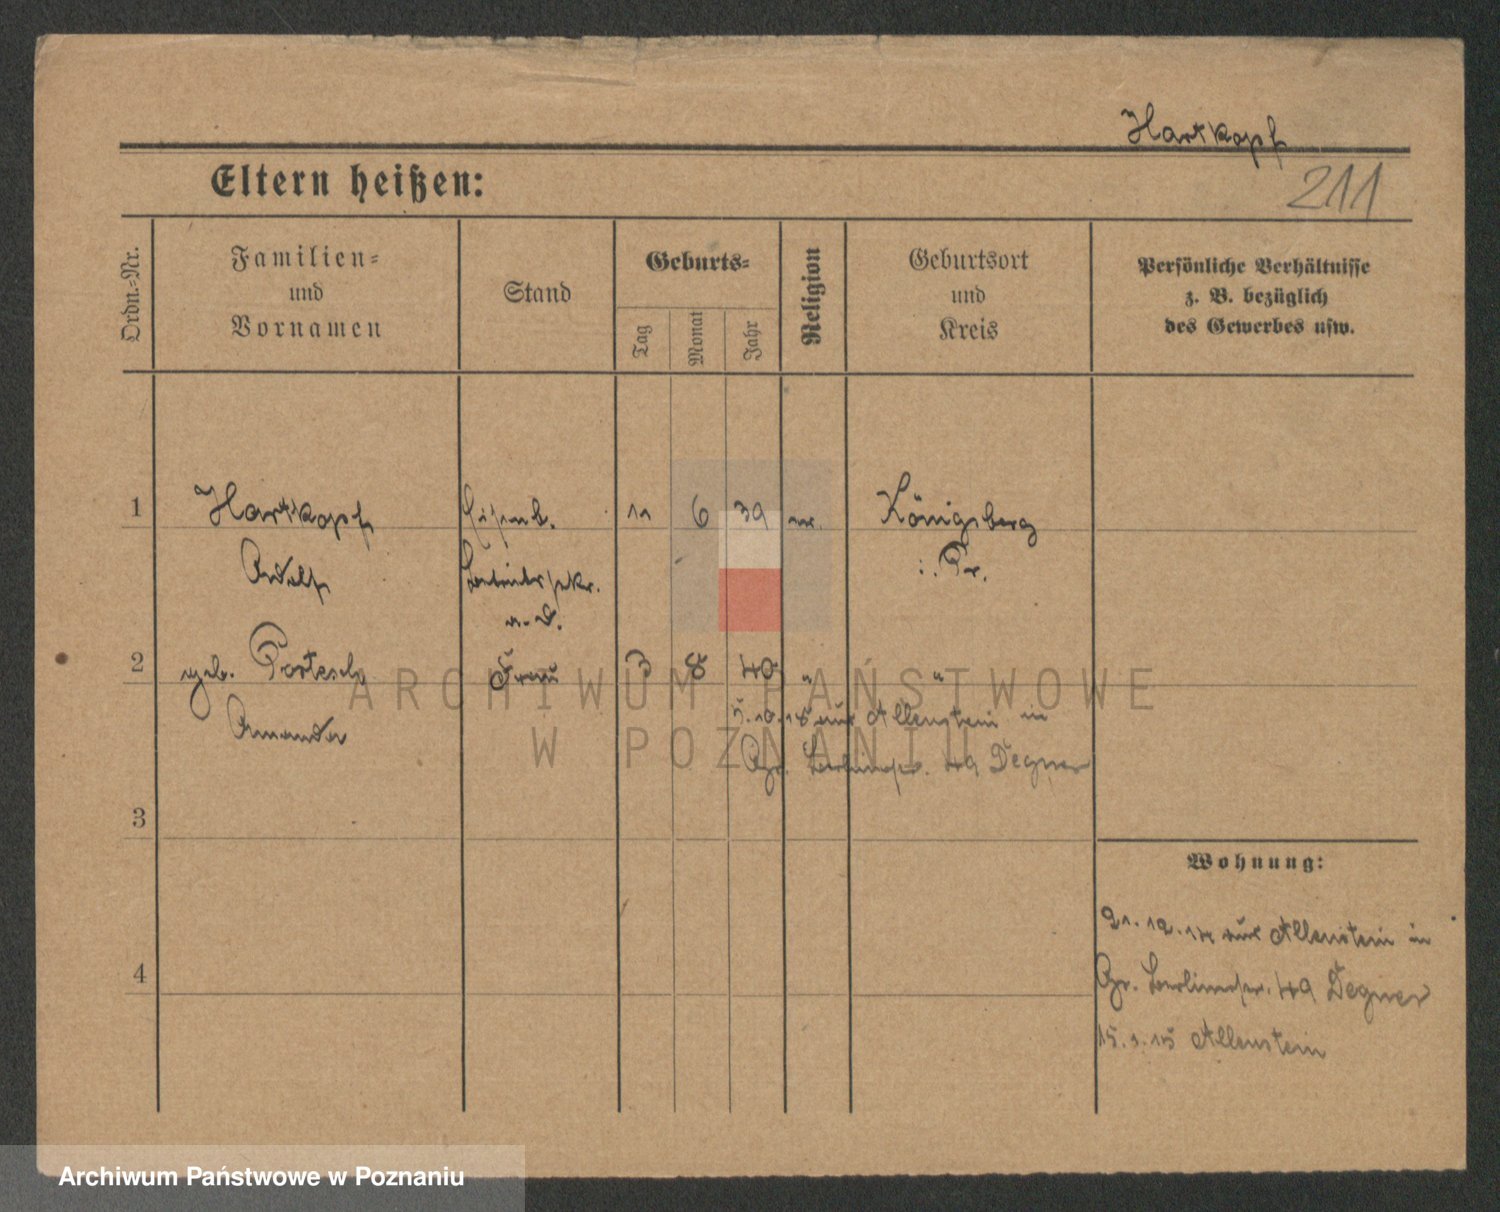 Hartkopf
Eltern heißen:
211
Ordn.-Nr.
Familien-
und
Vornamen
Stand
Geburts-
Tag
Monat
Jahr
Religion
Geburtsort
und
Kreis
Persönliche Verhältnisse
z. B. bezüglich
des Gewerbes usw.
1 Hartkopf Eisenb. 11 6 39 Königsberg
Adolf Betriebssekr. i. Pr.
a. D.
2 geb. Portesch Frau 3 8 40 " "
Amanda
5.10.15 aus Allenstein in
Gr. Berlinerstr. 49 Degner
3
Wohnung:
21.12.14 aus Allenstein in
4
Gr. Berlinerstr. 49 Degner
15.1.15 Allenstein
ARCHIWUM PAŃSTWOWE
W POZNANIU
Archiwum Państwowe w Poznaniu